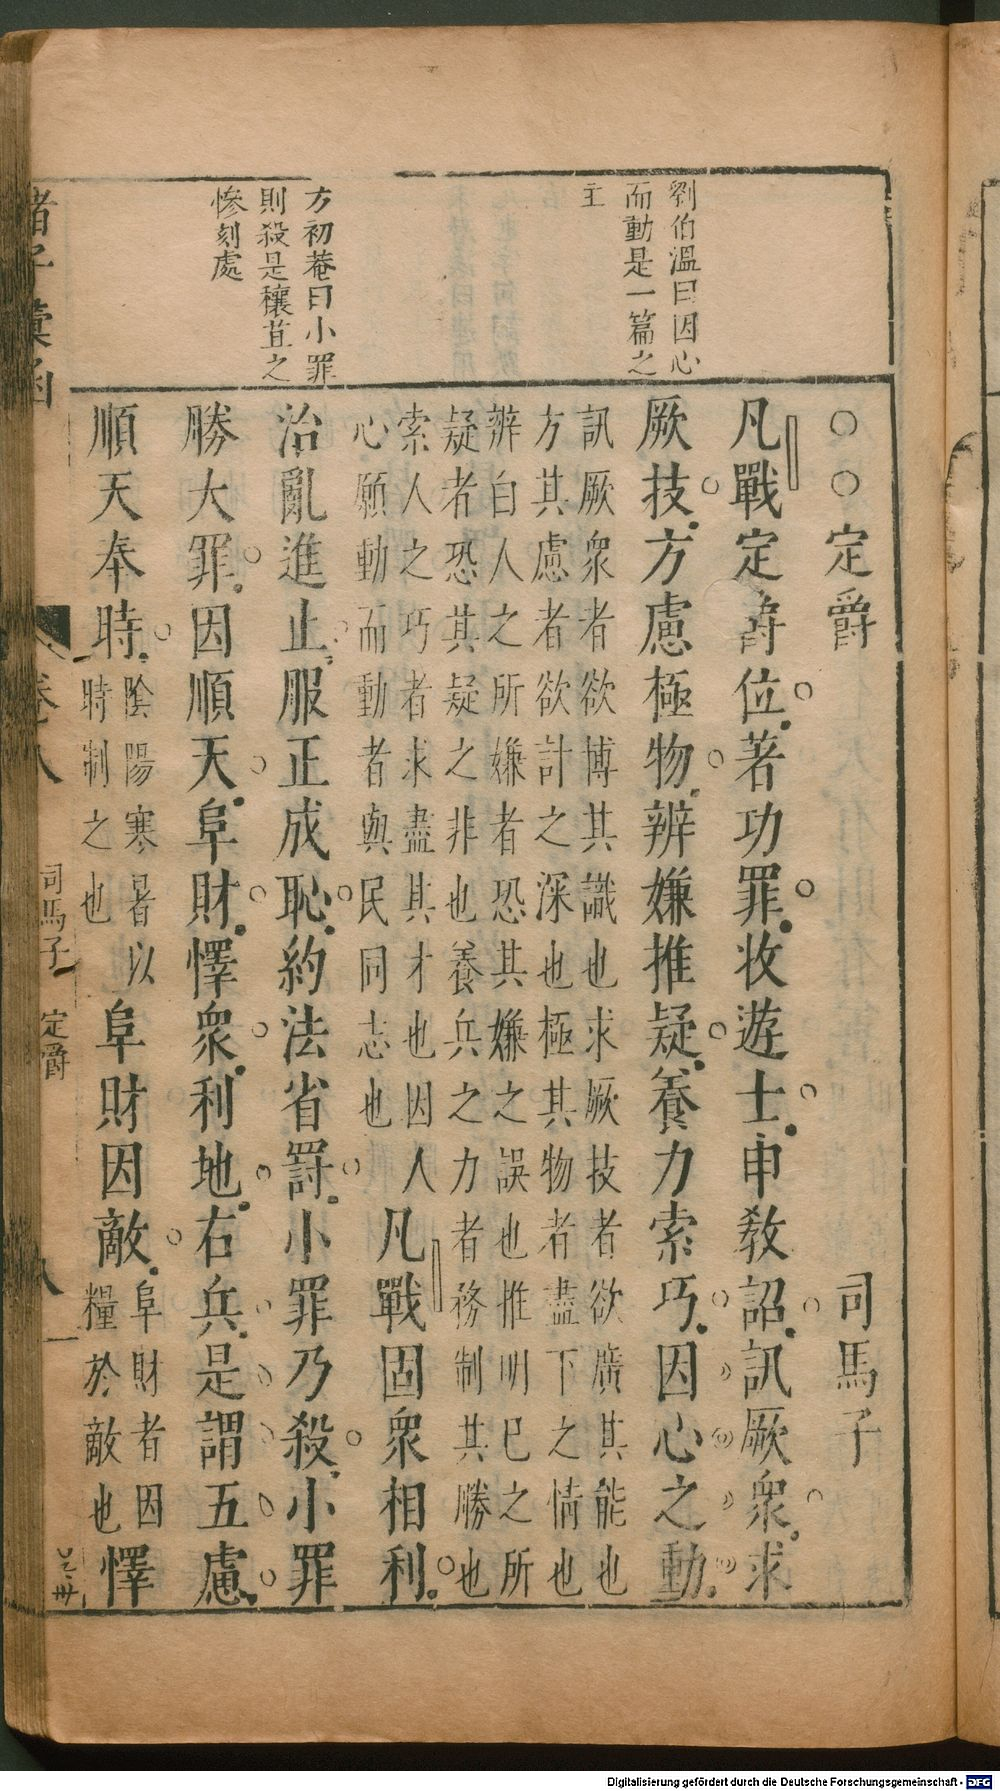 劉伯溫曰因心
而動是一篇之
主
方初菴曰小罪
則殺是穰苴之
慘刻處
○○定爵 司馬子
凡戰定爵位著功罪收遊士申敎詔訊厥衆求
厥技方慮極物辨嫌推疑養力索巧因心之動
訊厥衆者欲博其識也求厥技者欲廣其能也
方其慮者欲計之深也極其物者盡下之情也
辨白人之所嫌者恐其嫌之誤也推明已之所
疑者恐其疑之非也養兵之力者務制其勝也
索人之巧者求盡其才也因人
心願動而動者與民同志也
凡戰固衆相利
治亂進止服正成恥約法省罰小罪乃殺小罪
勝大罪因順天阜財懌衆利地右兵是謂五慮
順天奉時
陰陽寒暑以
時制之也
阜財因敵
阜財者因
糧於敵也
懌
諸子彙函
卷八
司馬子 定爵
八
Digitalisierung gefördert durch die Deutsche Forschungsgemeinschaft - DFG